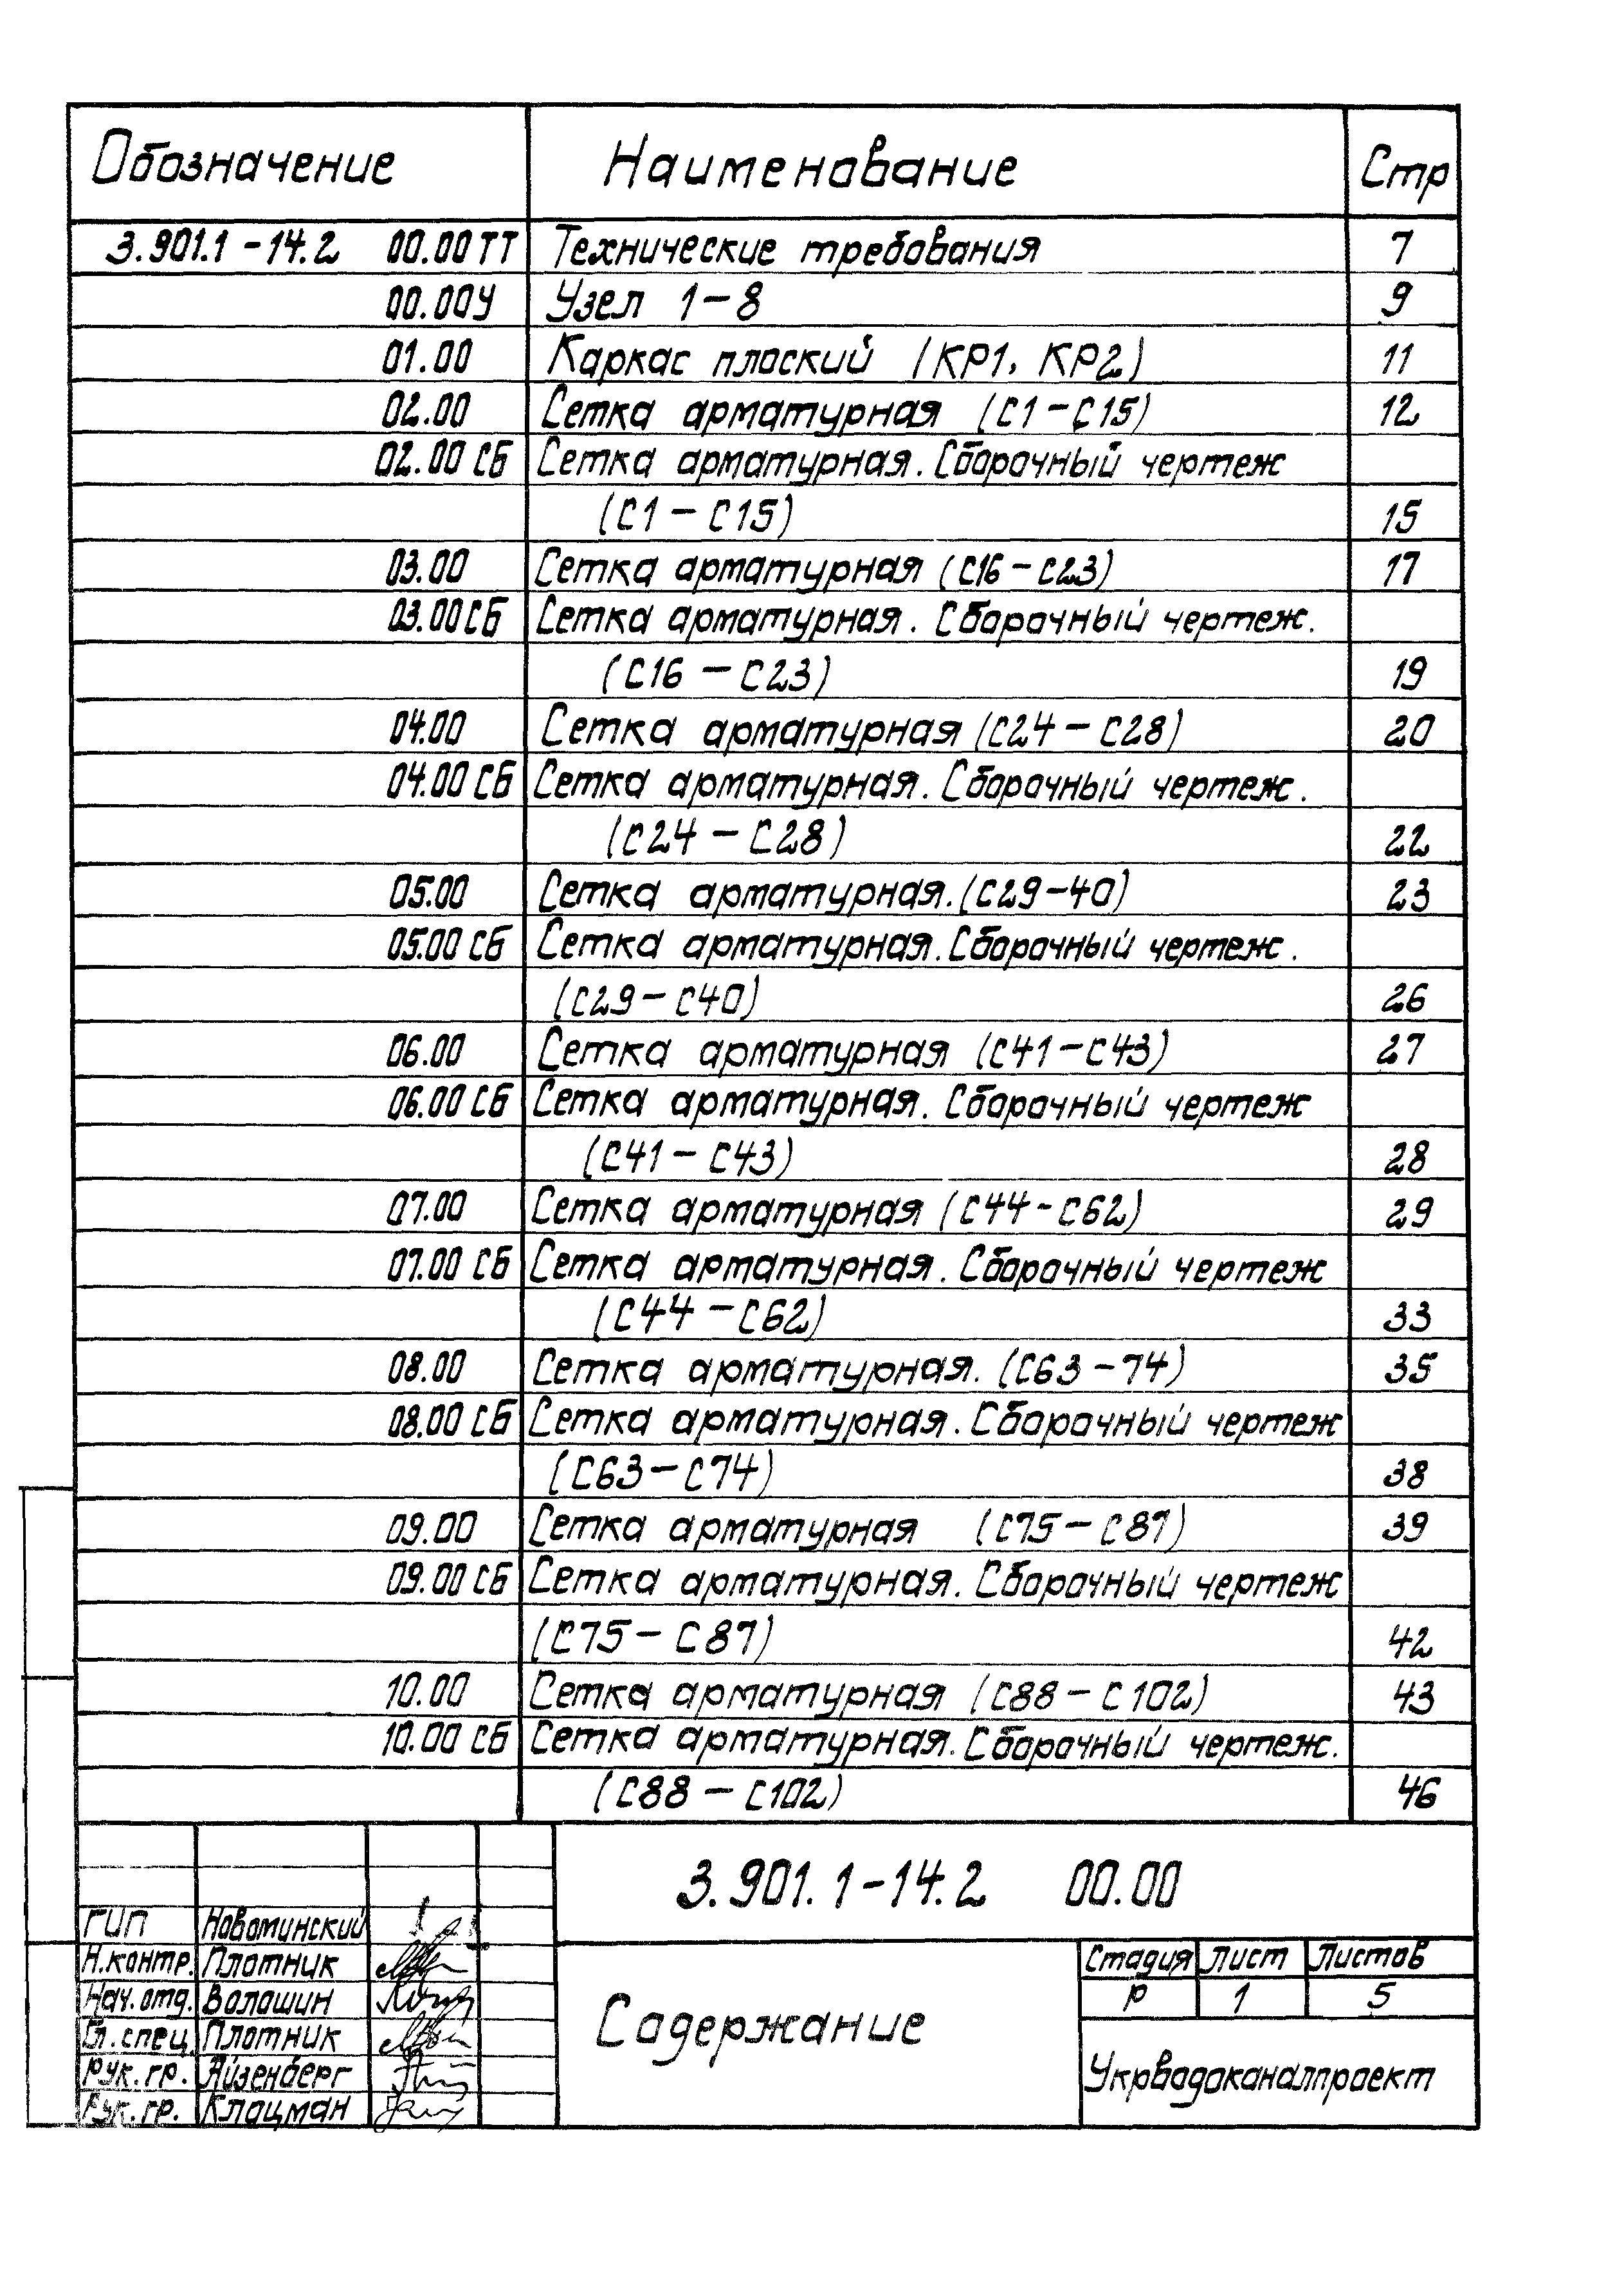 Обозначение Наименование Стр
3.901.1-14.2 00.00ТТ Технические требования 7
00.00У Узел 1-8 9
01.00 Каркас плоский (КР1, КР2) 11
02.00 Сетка арматурная (С1-С15) 12
02.00 СБ Сетка арматурная. Сборочный чертеж
(С1-С15) 15
03.00 Сетка арматурная (С16-С23) 17
03.00СБ Сетка арматурная. Сборочный чертеж.
(С16-С23) 19
04.00 Сетка арматурная (С24-С28) 20
04.00 СБ Сетка арматурная. Сборочный чертеж.
(С24-С28) 22
05.00 Сетка арматурная. (С29-40) 23
05.00 СБ Сетка арматурная. Сборочный чертеж.
(С29-С40) 26
06.00 Сетка арматурная (С41-С43) 27
06.00 СБ Сетка арматурная. Сборочный чертеж
(С41-С43) 28
07.00 Сетка арматурная (С44-С62) 29
07.00 СБ Сетка арматурная. Сборочный чертеж
(С44-С62) 33
08.00 Сетка арматурная. (С63-74) 35
08.00 СБ Сетка арматурная. Сборочный чертеж
(С63-С74) 38
09.00 Сетка арматурная (С75-С87) 39
09.00 СБ Сетка арматурная. Сборочный чертеж
(С75-С87) 42
10.00 Сетка арматурная (С88-С102) 43
10.00 СБ Сетка арматурная. Сборочный чертеж.
(С88-С102) 46
3.901.1-14.2 00.00
ГИП Новоминский
Н.контр. Плотник
Нач.отд. Волошин
Гл.спец. Плотник
Рук.гр. Айзенберг
Рук.гр. Клацман
Содержание
Стадия Лист Листов
Р 1 5
Укрводоканалпроект